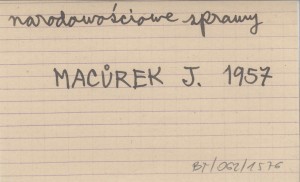 narodowościowe sprawy
MACŮREK J. 1957
BT/062/1576